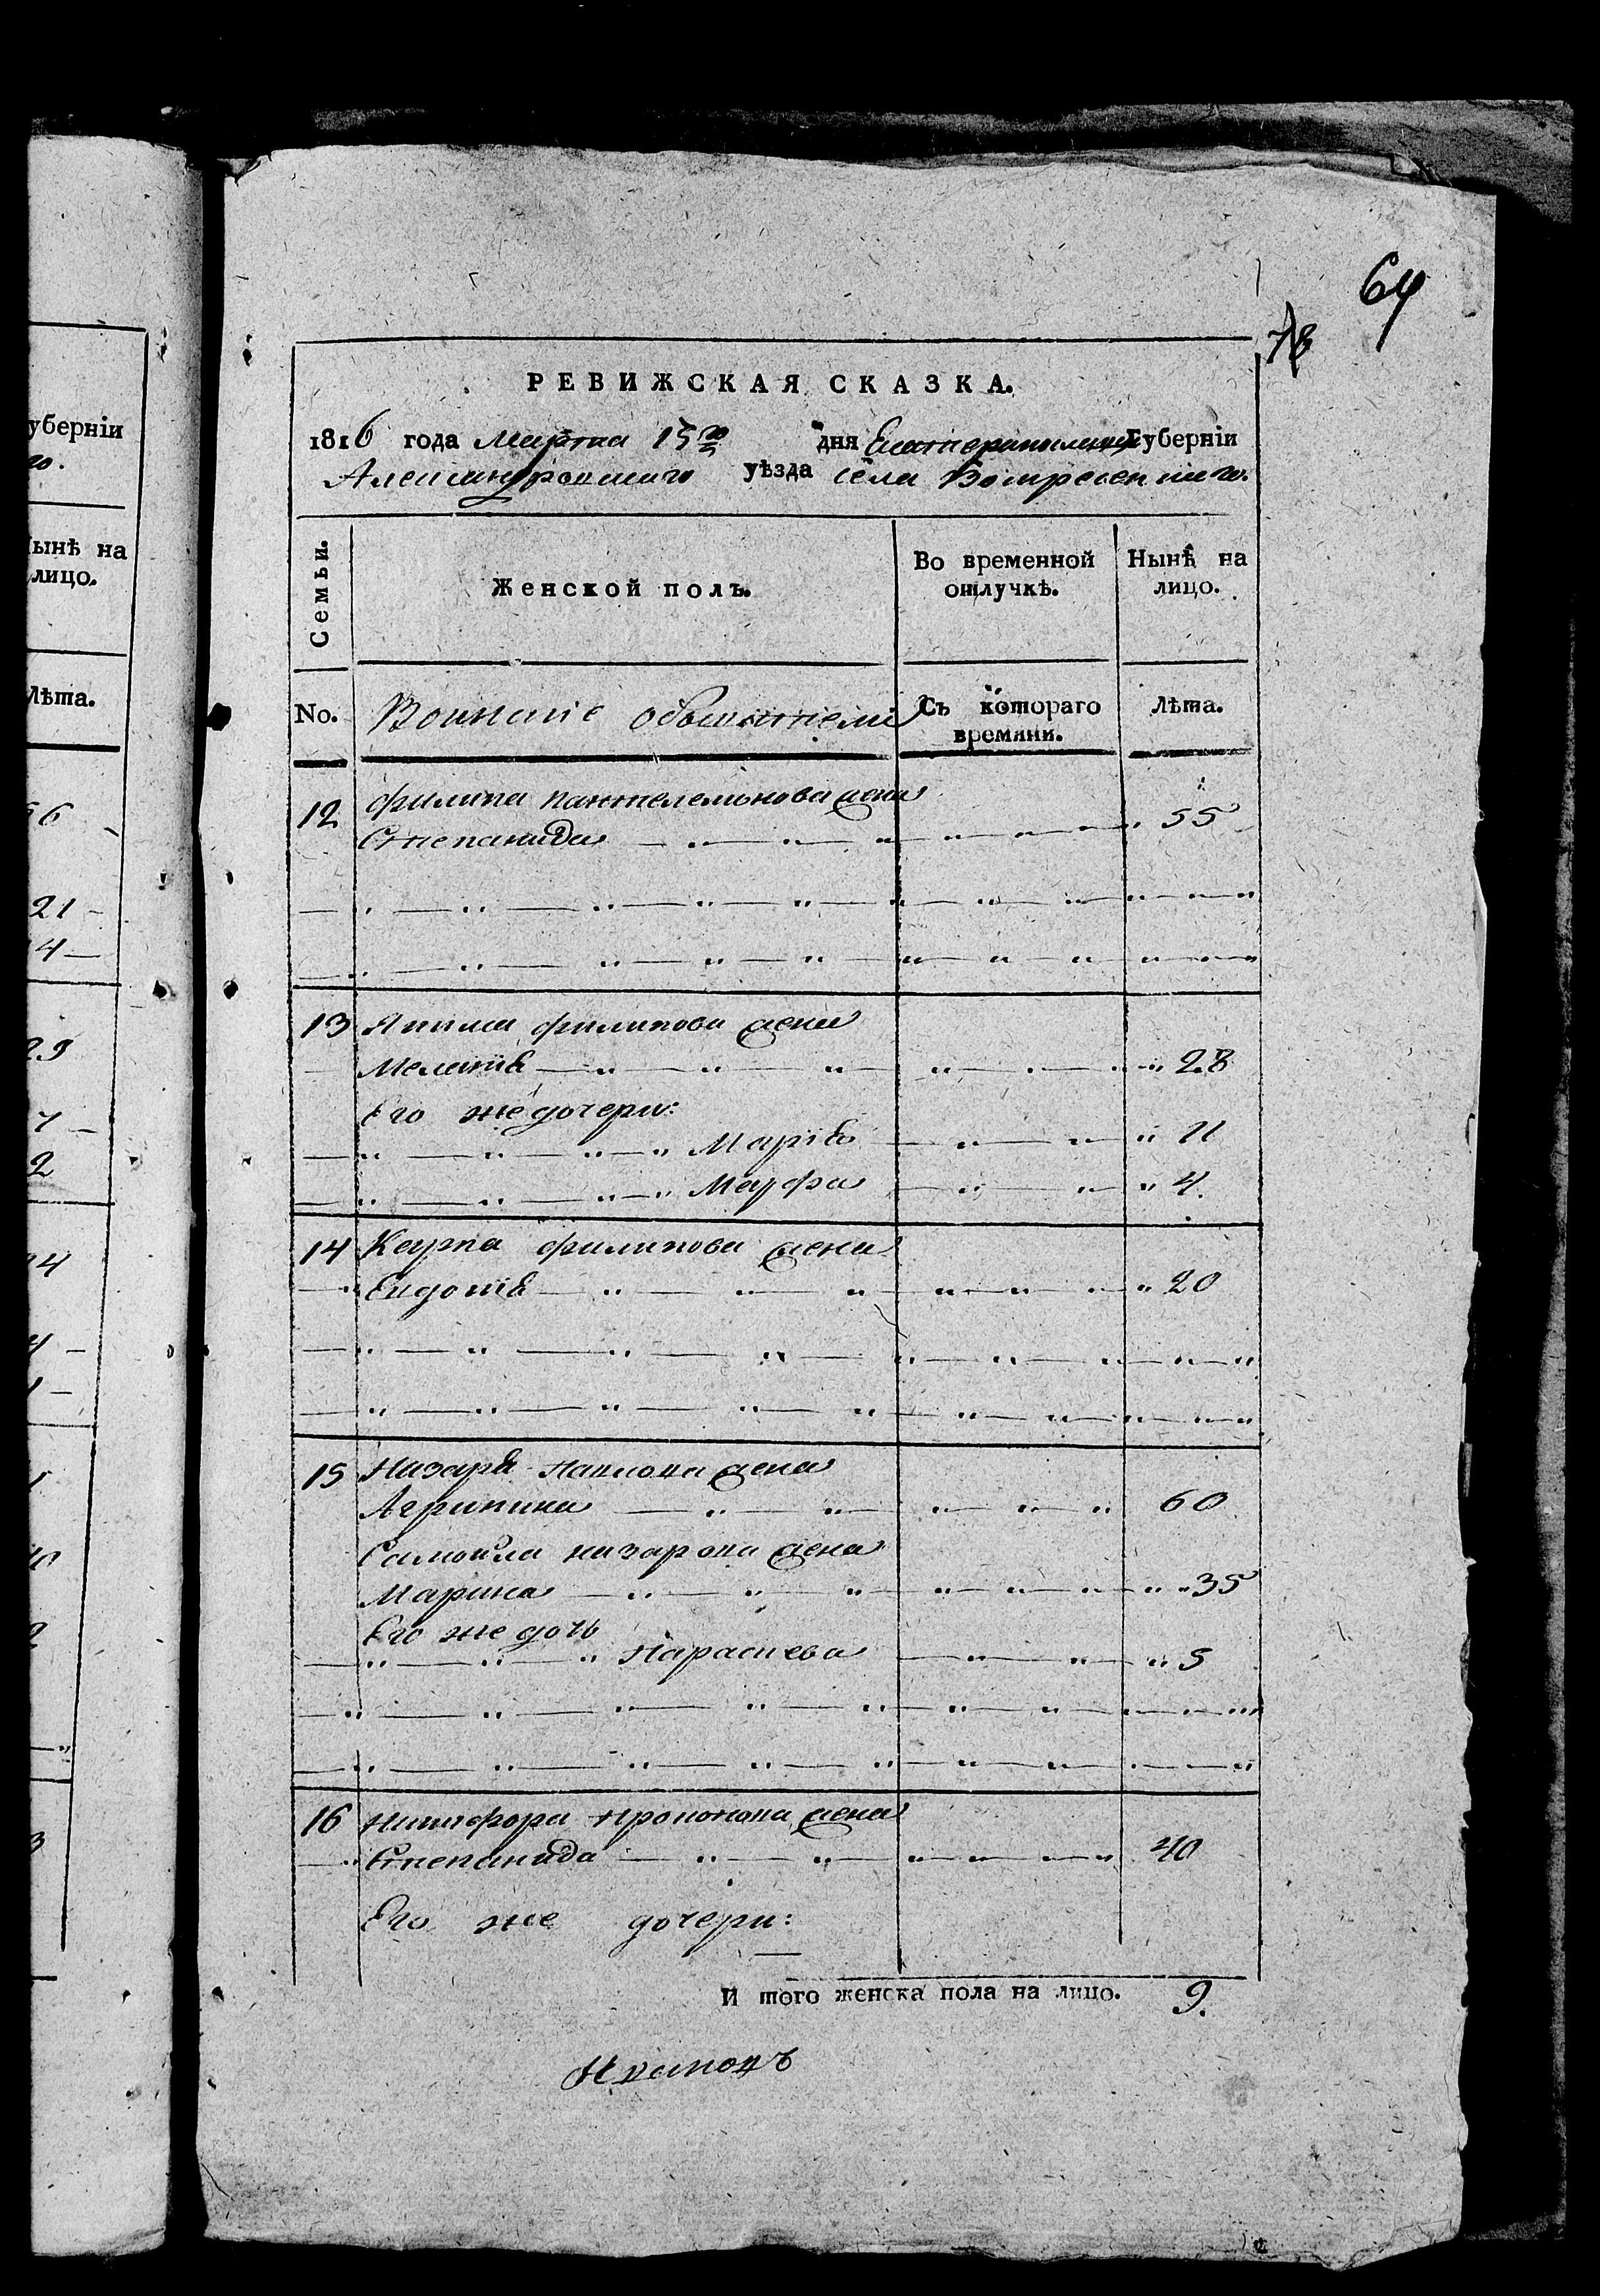 64
78
РЕВИЖСКАЯ СКАЗКА.
1816 года Марта 15го дня Екатеринославской Губернiи
Александровскаго уѣзда села Воскресенскаго.
Семьи.
Женской полъ.
Во временной отлучкѣ.
Нынѣ на лицо.
No.
Воинскiе обыватели
Съ котораго времяни.
Лѣта.
12 Филипа Пантелемонова жена
Степанида 55
13 Якима Филипова жена
Меланiя 28
Его же дочери:
Марiя 11
Марфа 4.
14 Карпа Филипова жена
Евдокiя 20
15 Назара Павлова жена
Агрипина 60
Самойла Назарова жена
Марина 35
Его же дочь
Параскева 5
16 Никифора жена
Степанида 40
Его же дочери:
И того женска пола на лицо. 9.
уберніи
го.
ынѣ на
лицо.
Лѣта.
21
4
29
2